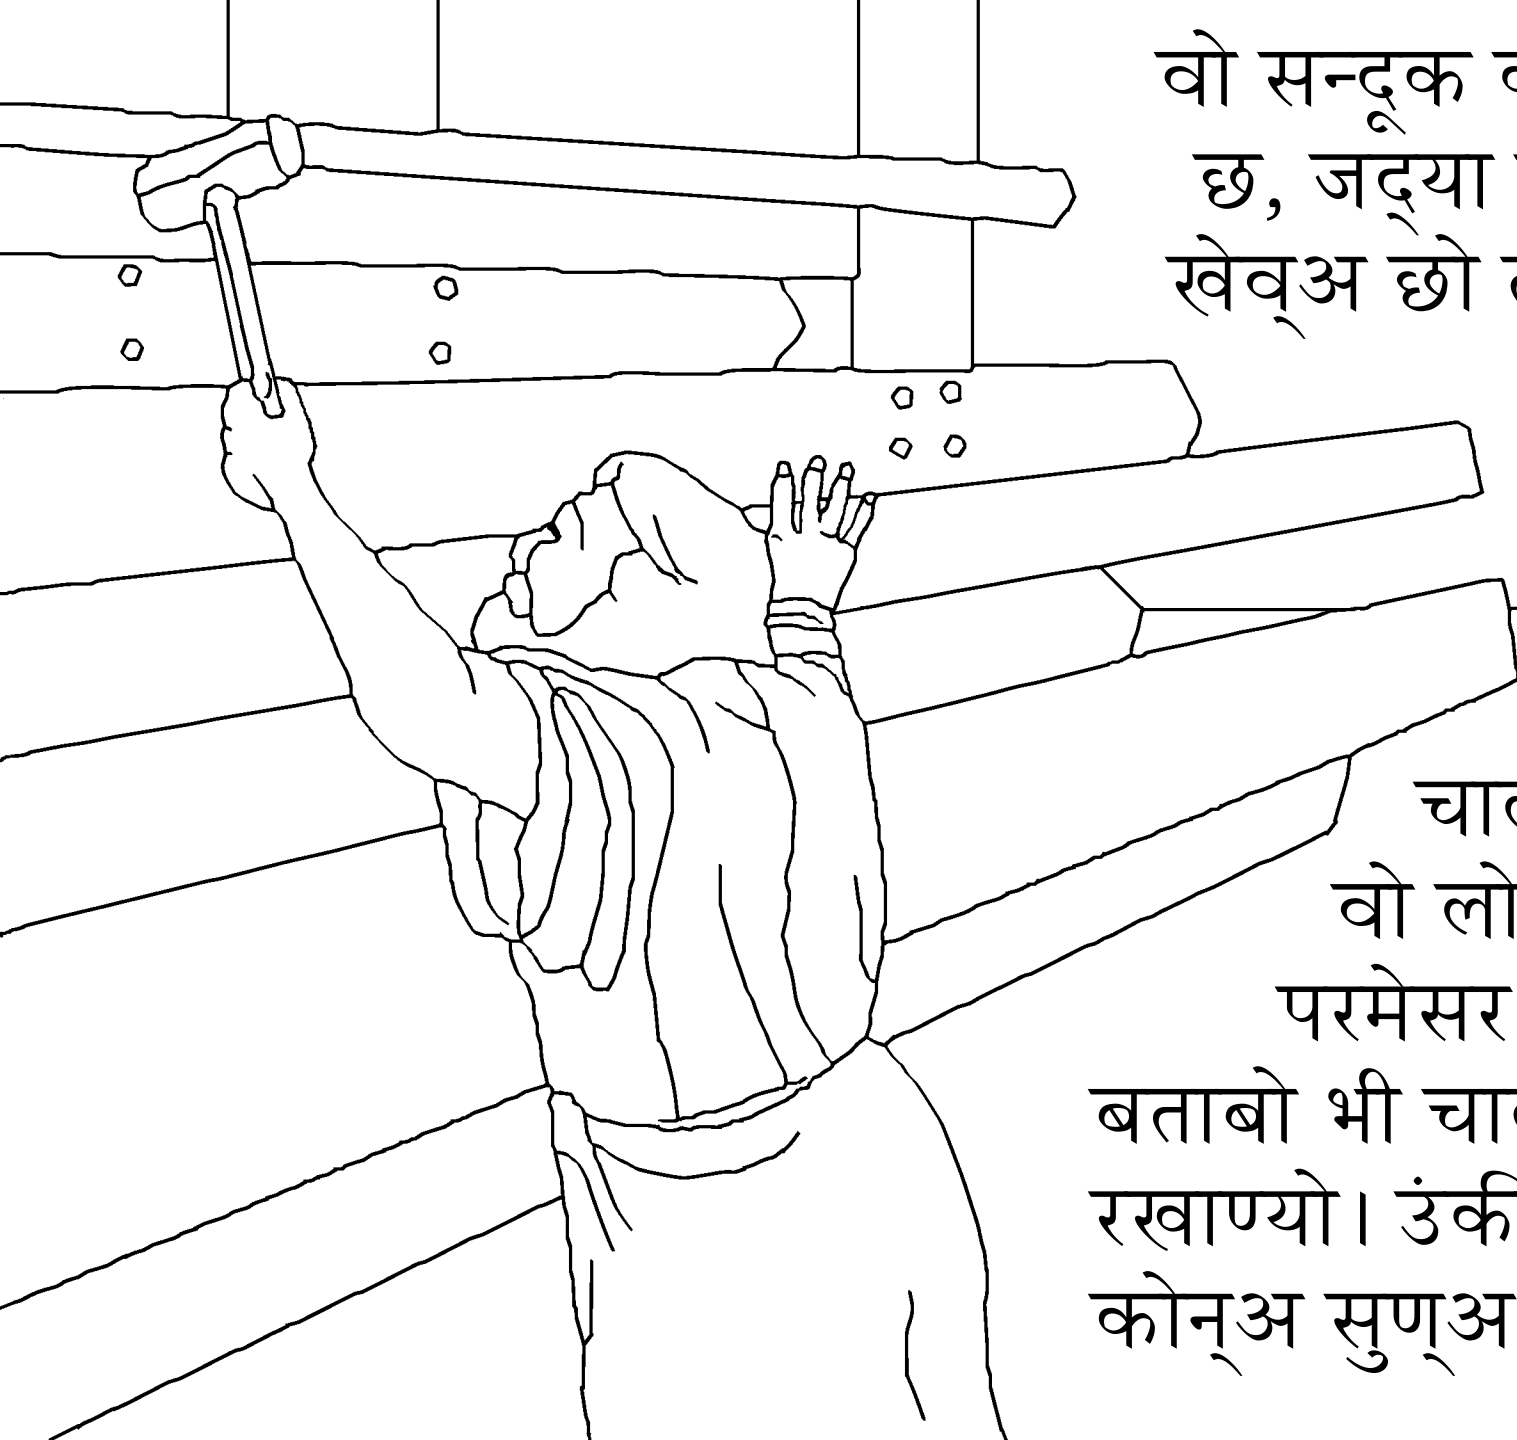 वो सन्दूक
छ, जद्‌या
खेव्अ छो
वो लो
परमेसर
बताबो भी
रखाण्यो। उंकी
कोन्अ सुण्अ